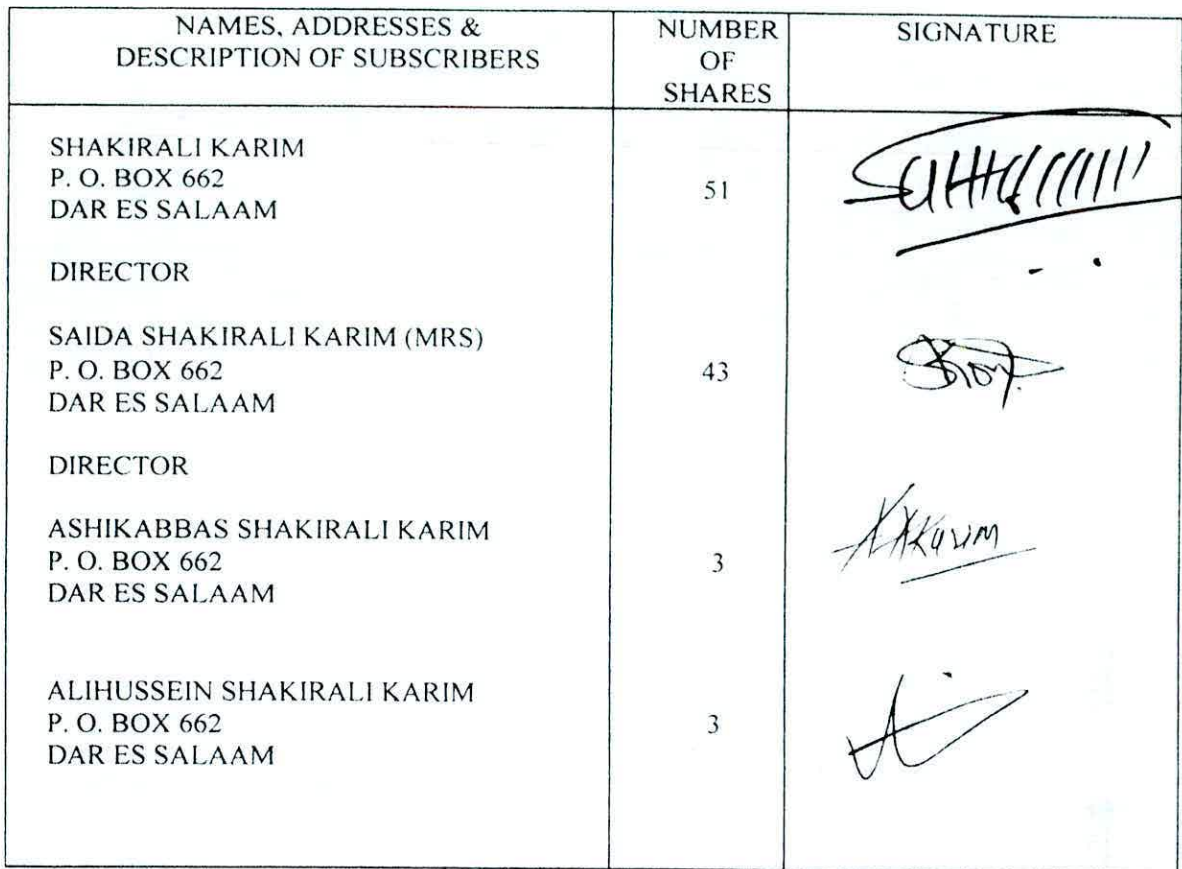 NAMES, ADDRESSES &
DESCRIPTION OF SUBSCRIBERS
NUMBER
OF
SHARES
SIGNATURE
SHAKIRALI KARIM
P. O. BOX 662
DAR ES SALAAM
51
DIRECTOR
SAIDA SHAKIRALI KARIM (MRS)
P. O. BOX 662
DAR ES SALAAM
43
DIRECTOR
ASHIKABBAS SHAKIRALI KARIM
P. O. BOX 662
DAR ES SALAAM
3
ALIHUSSEIN SHAKIRALI KARIM
P. O. BOX 662
DAR ES SALAAM
3